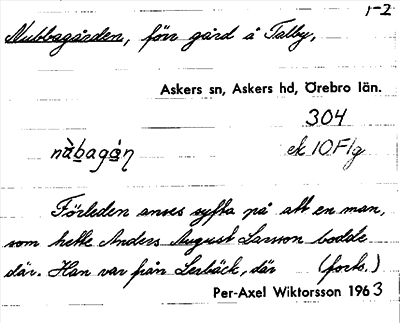 1-2
Nubbagården, förr gård å Talby,
Askers sn, Askers hd, Örebro län.
304
nùbagån̥ ek 10F1g
Förleden anses syfta på att en man,
som hette Anders August Larsson bodde
där. Han var från Lerbäck, där (forts.)
Per-Axel Wiktorsson 1963